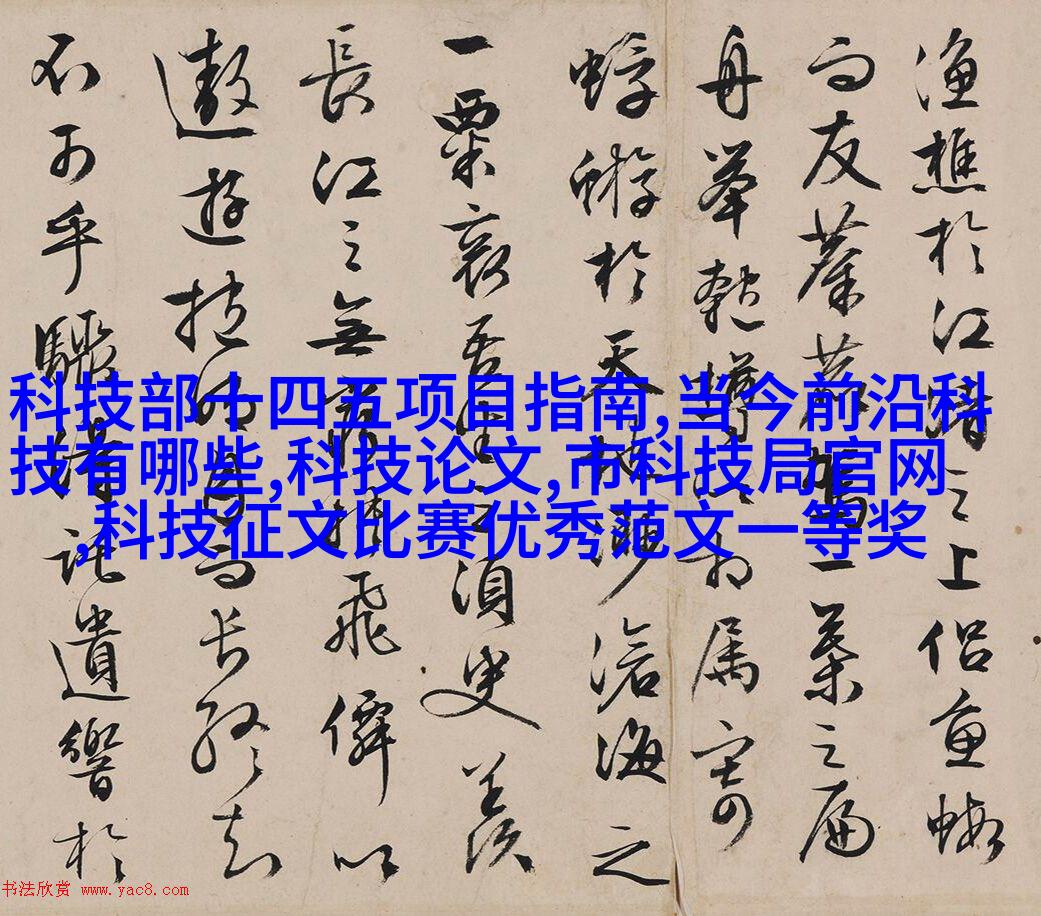 漁樵於江渚之上侣魚蝦
而友麋鹿駕一葉之扁
舟舉匏樽以相属寄
蜉蝣於天地渺滄海之
一粟哀吾生之須臾羨
長江之無窮挾飛僊以
遨遊抱明月而長終知
不可乎驟得託遺響於
科技部十四五项目指南,当今前沿科
技有哪些,科技论文,市科技局官网
,科技征文比赛优秀范文一等奖
书法欣赏 www.yac8.com